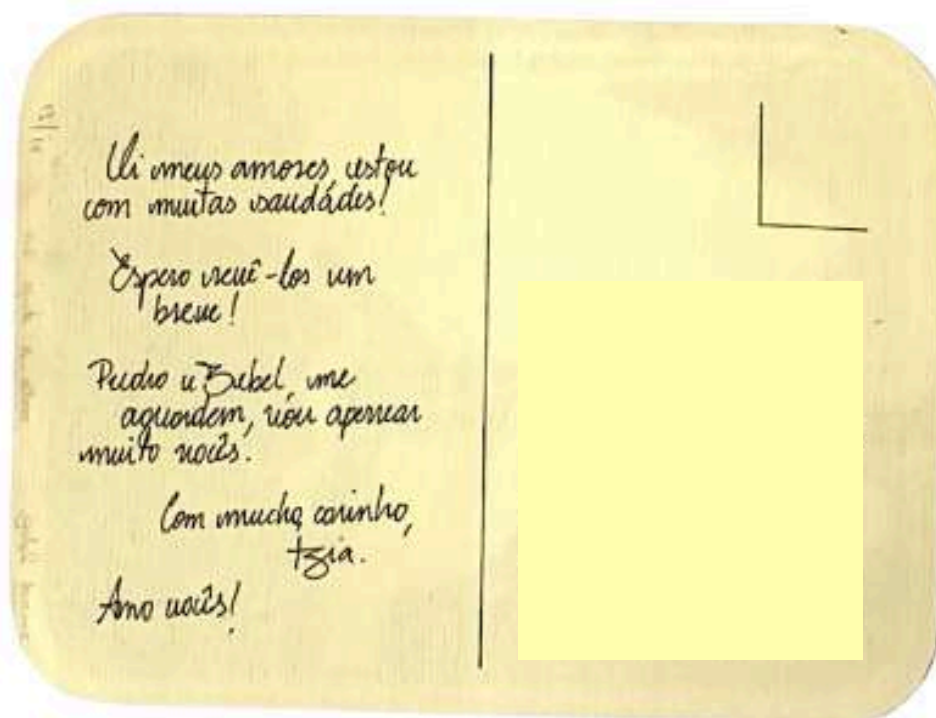 Oi meus amores estou
com muitas saudádes!
Espero revê-los em
breve!
Pedro e Bebel, me
aguardem, vou aperrear
muito vocês.
Com mucho carinho,
tzia.
Amo vocês!